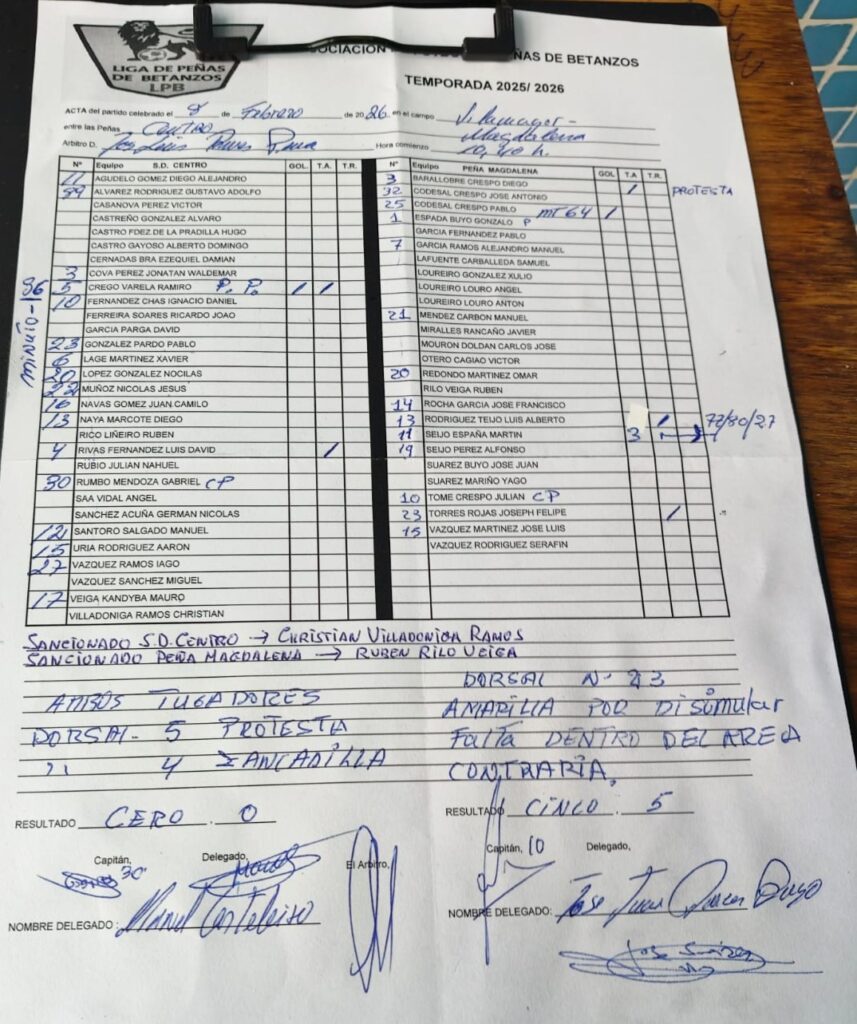 LIGA DE PEÑAS
DE BETANZOS
LPB
PEÑAS DE BETANZOS
TEMPORADA 2025/ 2026
ACTA del partido celebrado el 8 de Febrero de 2026 en el campo Vilamayor-
entre las Peñas CENTRO Magdalena
Arbitro D. Hora comienzo 10,40 h.
Nº Equipo S.D. CENTRO GOL. T.A. T.R.
11 AGUDELO GOMEZ DIEGO ALEJANDRO
99 ALVAREZ RODRIGUEZ GUSTAVO ADOLFO
CASANOVA PEREZ VICTOR
CASTREÑO GONZALEZ ALVARO
CASTRO FDEZ DE LA PRADILLA HUGO
CASTRO GAYOSO ALBERTO DOMINGO
CERNADAS BRA EZEQUIEL DAMIAN
3 COVA PEREZ JONATAN WALDEMAR
minuto-86 5 CREGO VARELA RAMIRO P. P. / /
10 FERNANDEZ CHAS IGNACIO DANIEL
FERREIRA SOARES RICARDO JOAO
GARCIA PARGA DAVID
23 GONZALEZ PARDO PABLO
6 LAGE MARTINEZ XAVIER
20 LOPEZ GONZALEZ NOCILAS
22 MUÑOZ NICOLAS JESUS
16 NAVAS GOMEZ JUAN CAMILO
13 NAYA MARCOTE DIEGO
RICO LIÑEIRO RUBEN
4 RIVAS FERNANDEZ LUIS DAVID /
RUBIO JULIAN NAHUEL
30 RUMBO MENDOZA GABRIEL CP
SAA VIDAL ANGEL
SANCHEZ ACUÑA GERMAN NICOLAS
12 SANTORO SALGADO MANUEL
15 URIA RODRIGUEZ AARON
27 VAZQUEZ RAMOS IAGO
VAZQUEZ SANCHEZ MIGUEL
17 VEIGA KANDYBA MAURO
VILLADONIGA RAMOS CHRISTIAN
Nº Equipo PEÑA MAGDALENA GOL T.A T.R.
3 BARALLOBRE CRESPO DIEGO
32 CODESAL CRESPO JOSE ANTONIO / PROTESTA
25 CODESAL CRESPO PABLO MT 64 /
1 ESPADA BUYO GONZALO P
GARCIA FERNANDEZ PABLO
7 GARCIA RAMOS ALEJANDRO MANUEL
LAFUENTE CARBALLEDA SAMUEL
LOUREIRO GONZALEZ XULIO
LOUREIRO LOURO ANGEL
LOUREIRO LOURO ANTON
21 MENDEZ CARBON MANUEL
MIRALLES RANCAÑO JAVIER
MOURON DOLDAN CARLOS JOSE
OTERO CAGIAO VICTOR
20 REDONDO MARTINEZ OMAR
RILO VEIGA RUBEN
14 ROCHA GARCIA JOSE FRANCISCO
13 RODRIGUEZ TEIJO LUIS ALBERTO /
11 SEIJO ESPAÑA MARTIN 3 72/80/27
19 SEIJO PEREZ ALFONSO
SUAREZ BUYO JOSE JUAN
SUAREZ MARIÑO YAGO
10 TOME CRESPO JULIAN CP
23 TORRES ROJAS JOSEPH FELIPE /
15 VAZQUEZ MARTINEZ JOSE LUIS
VAZQUEZ RODRIGUEZ SERAFIN
SANCIONADO S.D. CENTRO → CHRISTIAN VILLADONIGA RAMOS
SANCIONADO PEÑA MAGDALENA → RUBEN RILO VEIGA
AMBOS JUGADORES
DORSAL - 5 PROTESTA
,, 4 ZANCADILLA
DORSAL Nº 23
AMARILLA POR DISIMULAR
FALTA DENTRO DEL AREA
CONTRARIA.
RESULTADO CERO . 0
RESULTADO CINCO . 5
Capitán, 30 Delegado, El Arbitro,
Capitán, 10 Delegado,
NOMBRE DELEGADO:
NOMBRE DELEGADO: